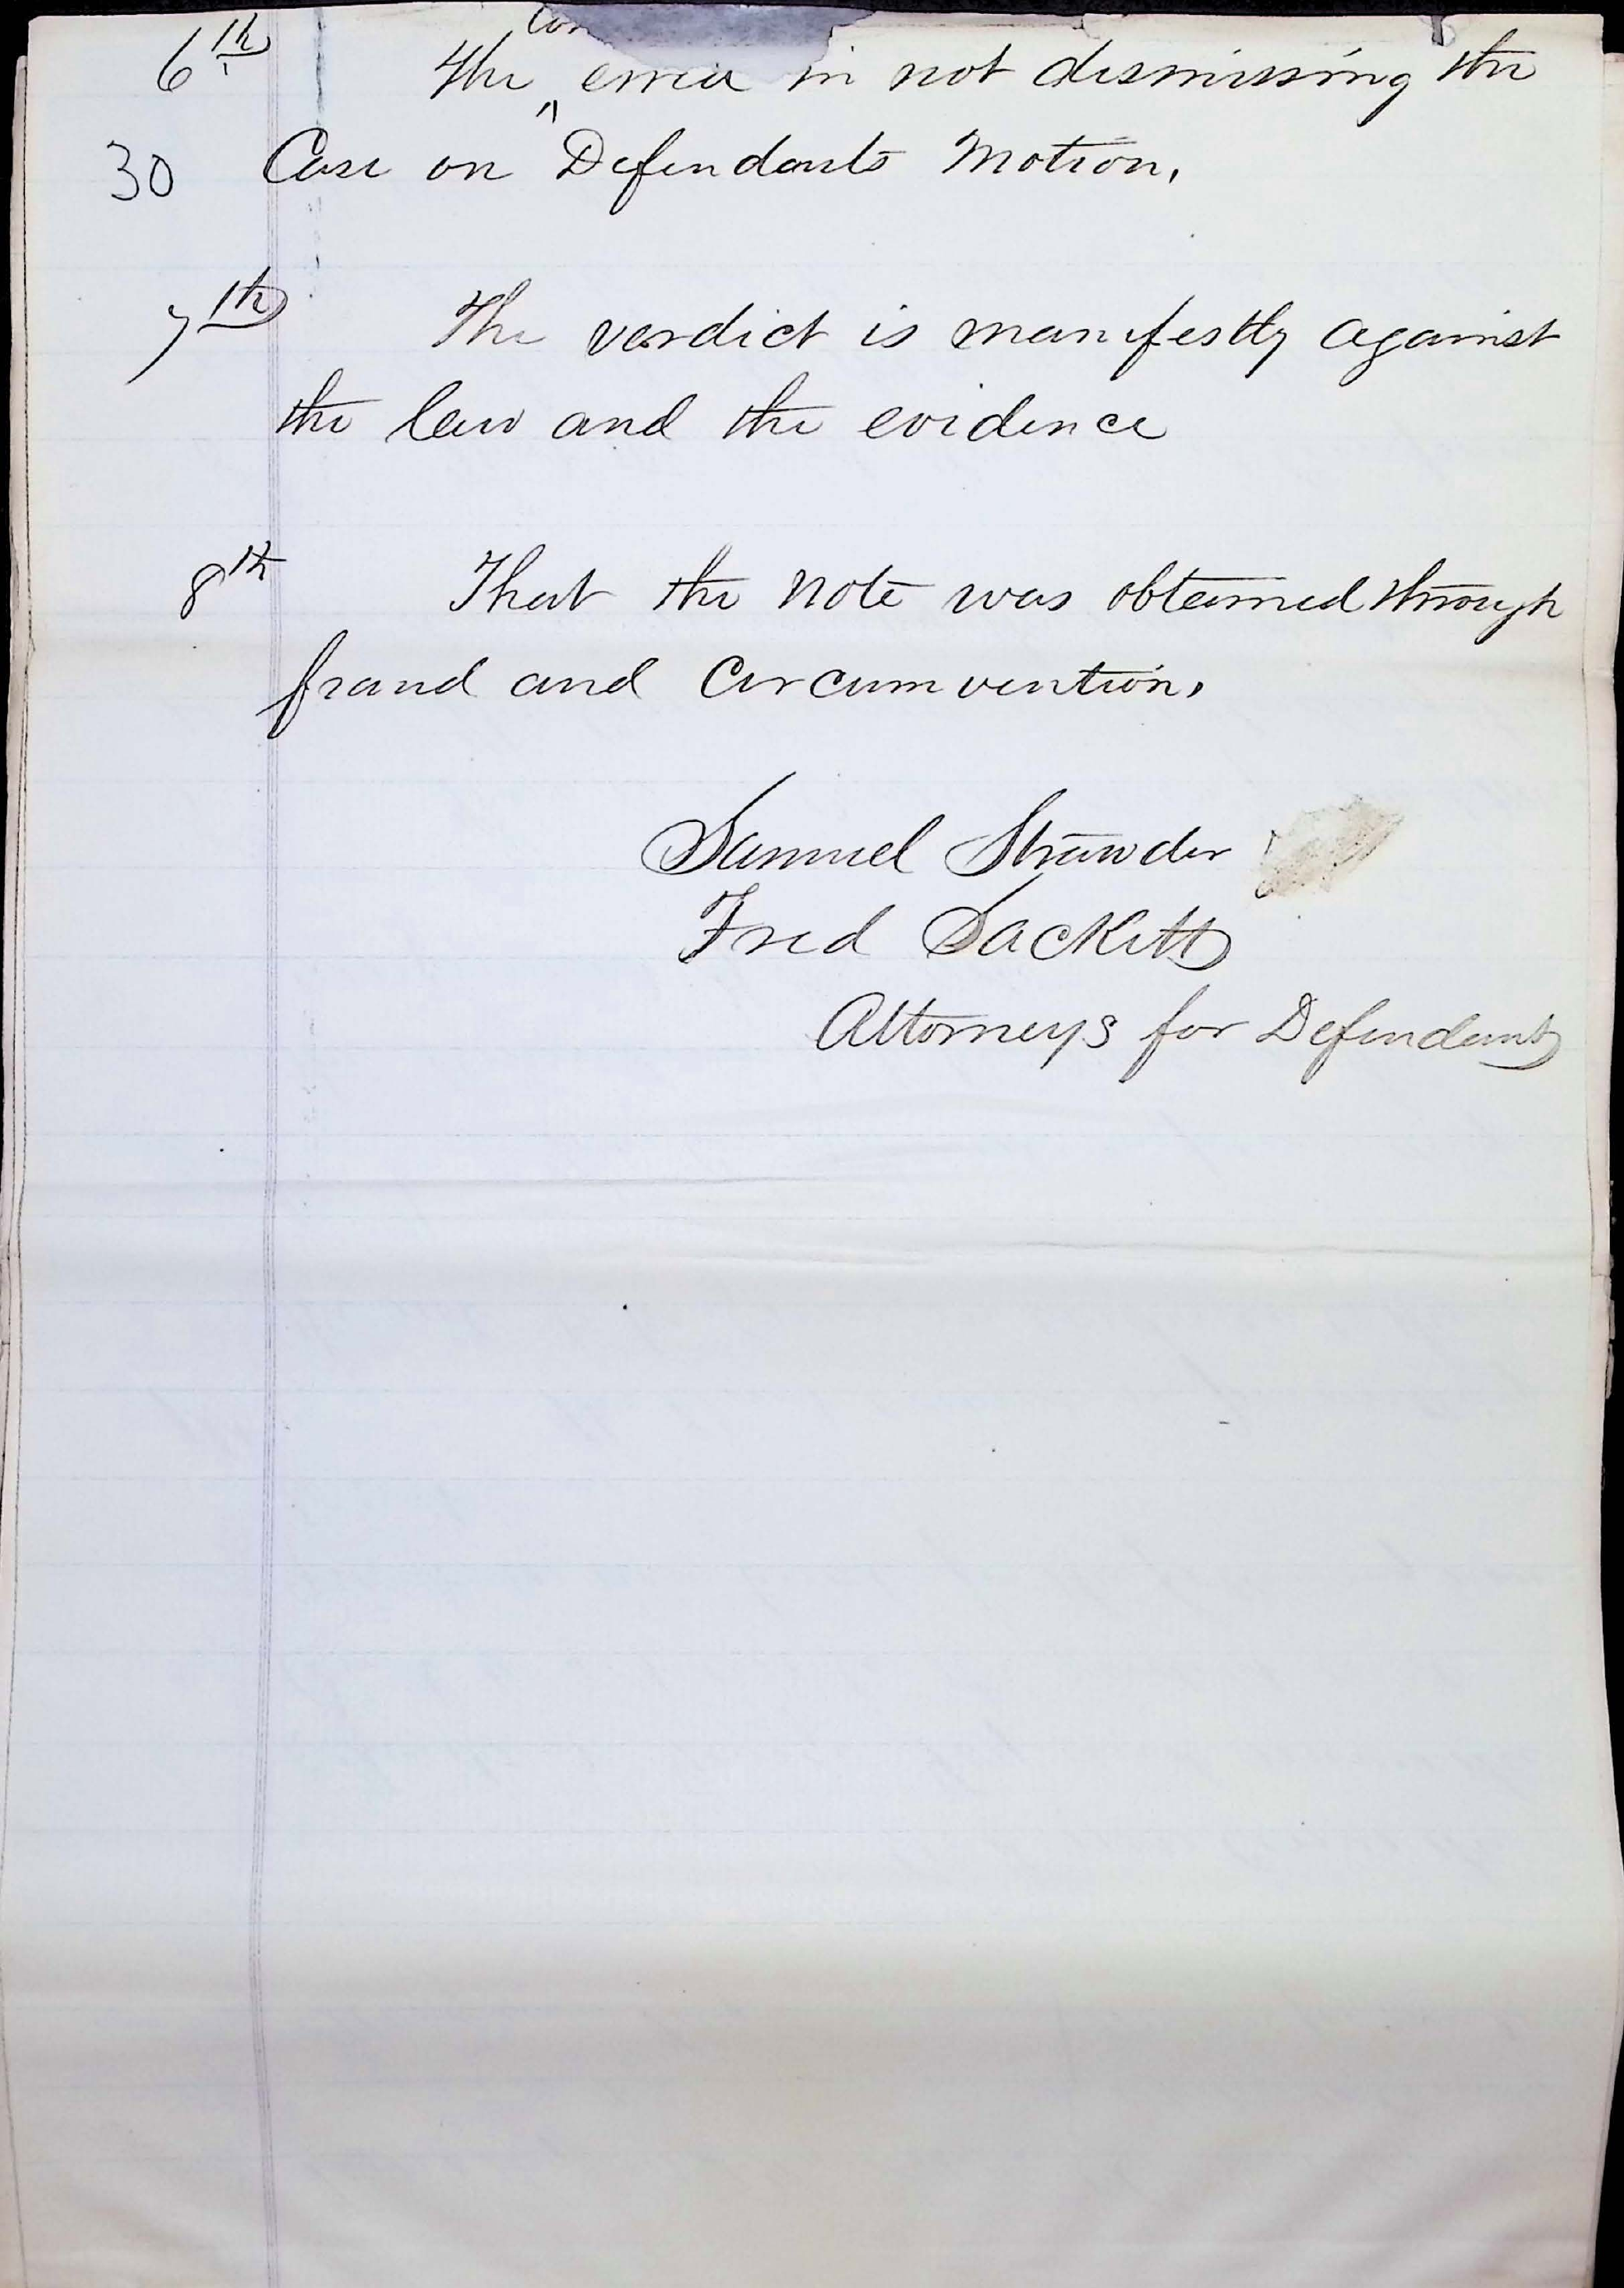 6th The ^ erred in not dismissing the
30 Case on Defendants Motion.
7th The verdict is manifestly against
the law and the evidence
8th That the Note was obtained through
fraud and Circumvention.
Samuel Strawder
Fred Sackett
Attorneys for Defendants